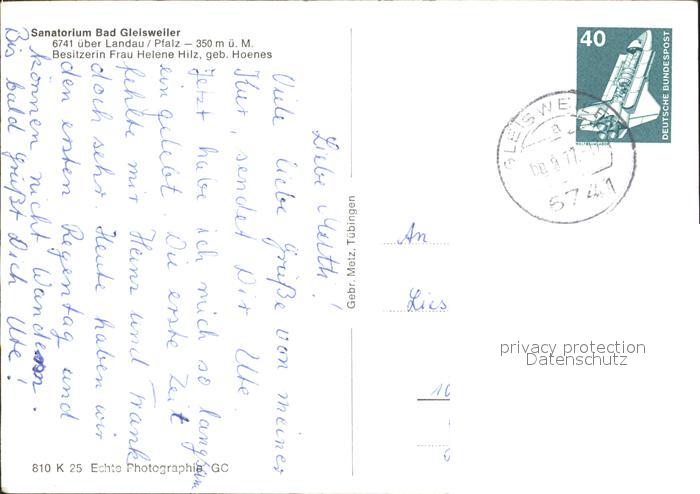 Sanatorium Bad Gleisweiler
6741 über Landau / Pfalz – 350 m ü. M.
Besitzerin Frau Helene Hilz, geb. Hoenes
Liebe
Viele liebe Grüße von meiner
Kur, sendet Dir Ute.
Jetzt habe ich mich so langsam
eingelebt. Die erste Zeit
fehlte mir Heinz und Frank
doch sehr. Heute haben wir
den ersten Regentag und
können nicht Wandern.
Bis bald grüßt Dich Ute!
810 K 25 Echte Photographie, GC
Gebr. Metz, Tübingen
40
DEUTSCHE BUNDESPOST
GLEISWEILER
a
6741
An
Lies
10
privacy protection
Datenschutz